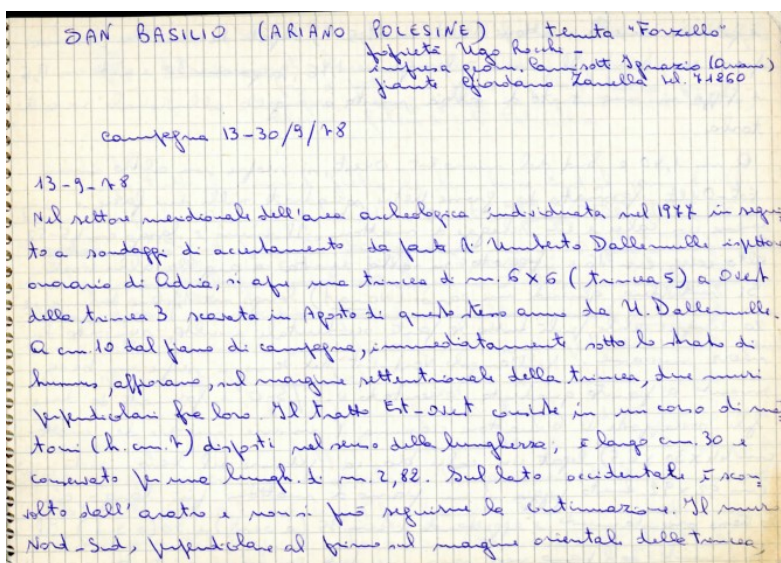 SAN BASILIO (ARIANO POLESINE) tenuta "Forzello"
proprietà Ugo Rocchi -
impresa geom. Camisott Ignazio (Ariano)
Giordano Zanella tel. 71260
campagna 13-30/9/78
13-9-78
Nel settore meridionale dell'area archeologica individuata nel 1977 in segui=
to a sondaggi di accertamento da parte di Umberto Dallemulle ispettore
onorario di Adria, si apre una trincea di m. 6x6 (trincea 5) a Ovest
della trincea 3 scavata in Agosto di questo stesso anno da U. Dallemulle.
A cm. 10 dal piano di campagna, immediatamente sotto lo strato di
humus, affiorano, sul margine settentrionale della trincea, due muri
perpendicolari fra loro. Il tratto Est-Ovest consiste in un corso di mat=
toni (h. cm. 7) disposti nel senso della lunghezza; è largo cm. 30 e
conservato per una lungh. di m. 2,82. Sul lato occidentale è scon=
volto dall'aratro e non si può seguirne la continuazione. Il muro
Nord-Sud, perpendicolare al primo sul margine orientale della trincea,